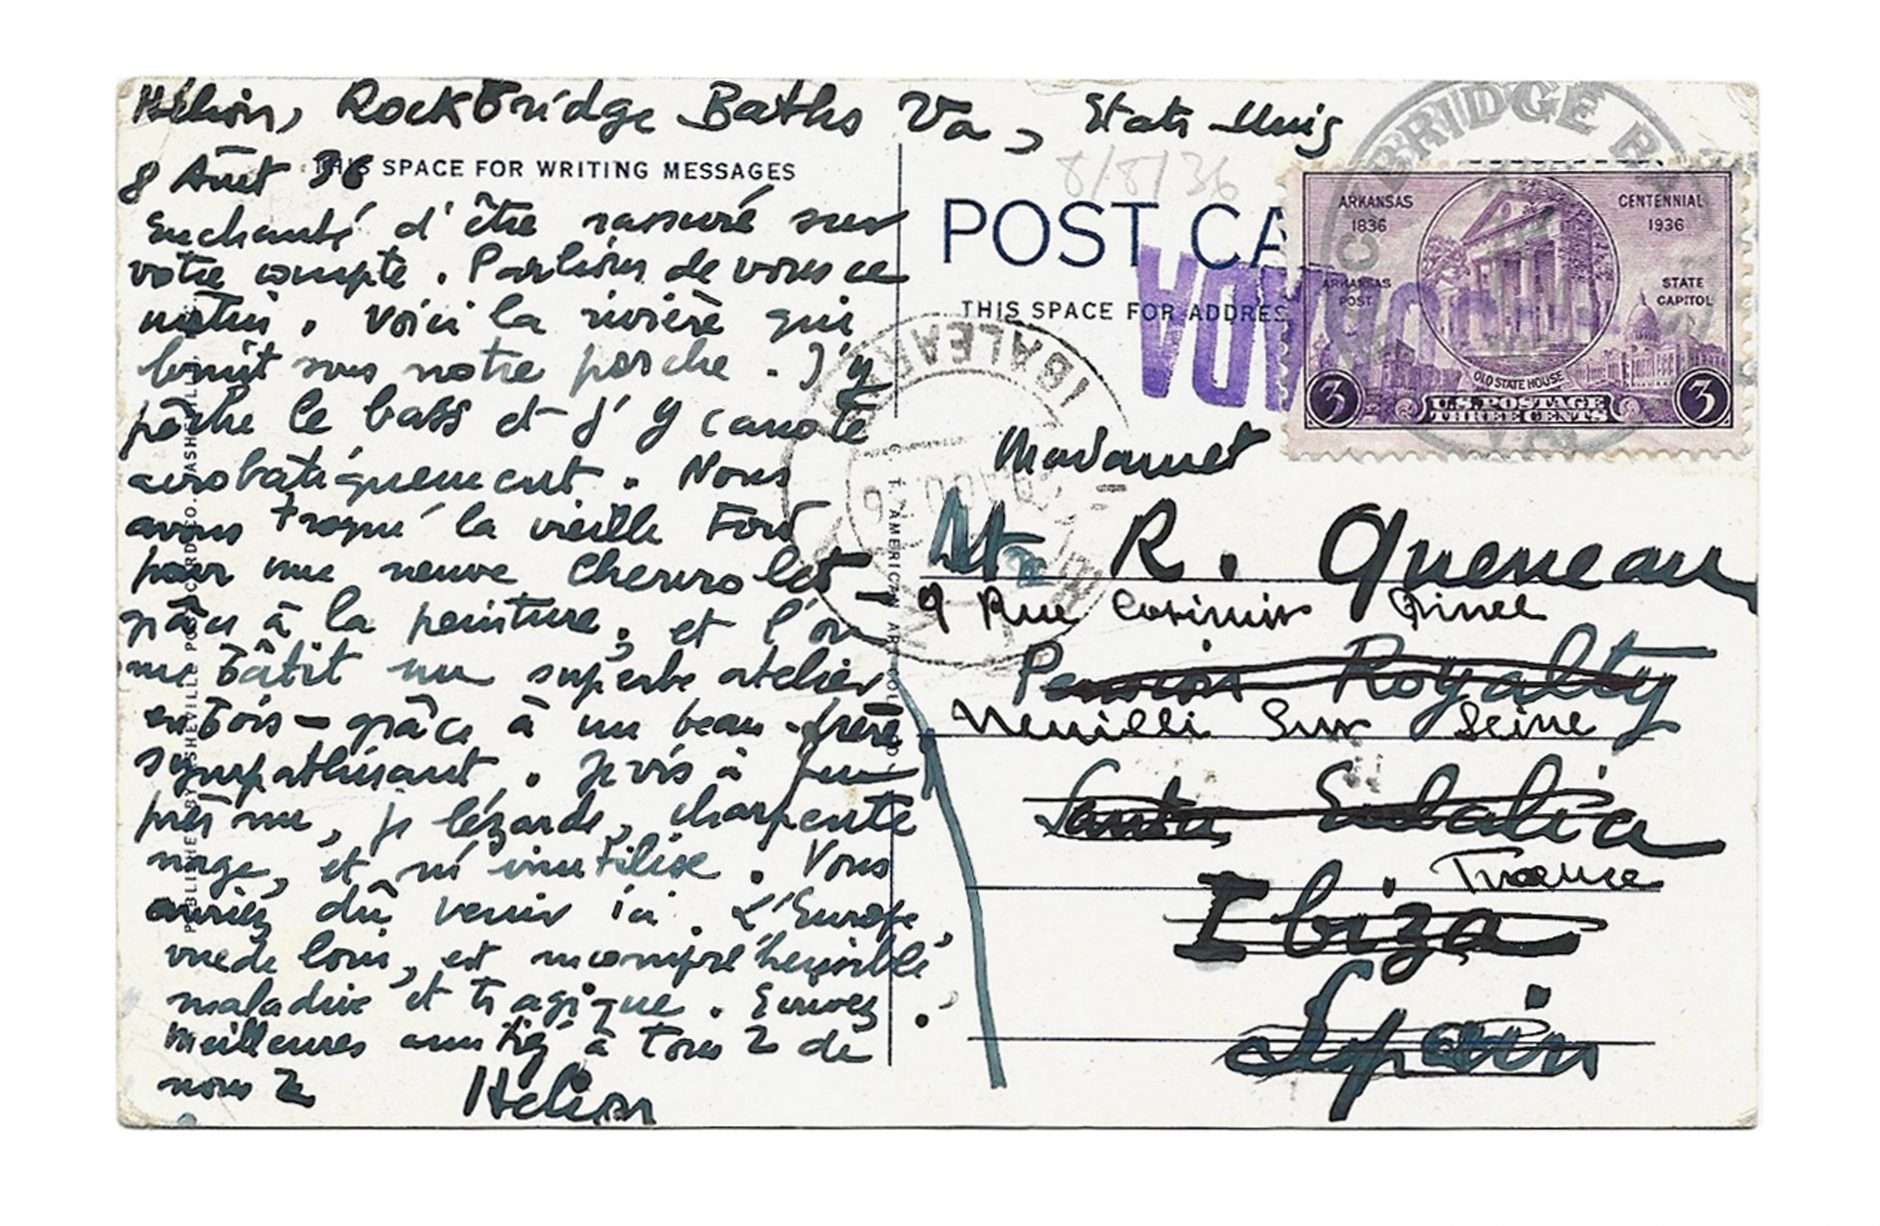 Hélion, RockBridge Baths Va, Etats Unis
8 Août 36
THIS SPACE FOR WRITING MESSAGES
Enchanté d'être rassuré sur
votre compte. Parlions de vous ce
matin. Voici la rivière qui
bruit sous notre porche. J'y
pêche le bass et j'y canote
acrobatiquement. Nous
avons troqué la vieille Ford
pour une neuve Chevrolet –
grâce à la peinture, et l'on
me bâtit un superbe atelier
en bois – grâce à un beau-frère
sympathisant. Je vis à peu
près nu, je lézarde, charpente
nage, et m'inutilise. Vous
auriez dû venir ici. L'Europe,
vue de loin, est incompréhensible,
maladive et tragique. Ecrivez.
Meilleures amitiés à tous 2 de
nous 2
Hélion
8/8/36
POST CA
THIS SPACE FOR ADDRES
BRIDGE BA
VA
ARKANSAS
1836
CENTENNIAL
1936
ARKANSAS
POST
STATE
CAPITOL
OLD STATE HOUSE
3 U.S. POSTAGE 3
THREE CENTS
IBALEAR
Madame et
Mr R. Queneau
9 Rue Casimir Pinel
Pension Royalty
Neuilli Sur Seine
Santa Eulalia
France
Ibiza
Spain
C. T. AMERICAN ART